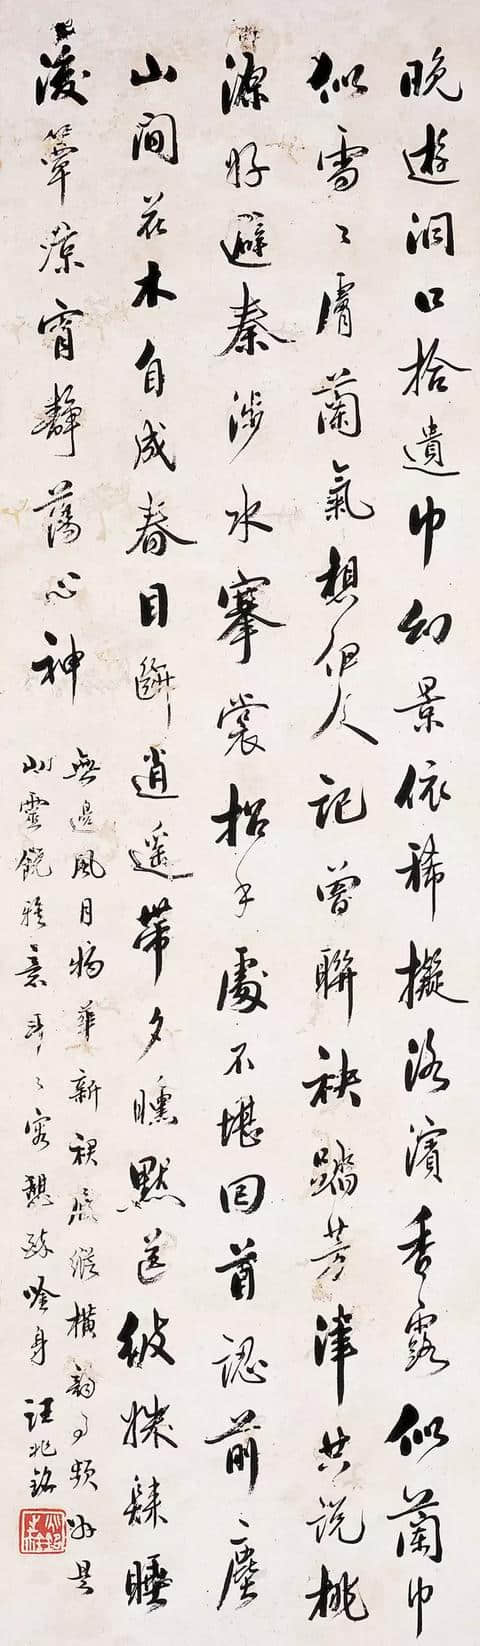 晚遊洞口拾遺巾幻景依稀擬洛濱香霧似蘭巾
似雪〻膚蘭氣想伊人記曾聯袂踏芳津共說桃
源好避秦涉水搴裳招手處不堪回首認前塵
山間花木自成春目斷逍遥帶夕曛默送睡
後簟宵靜蕩心神
無邊風月物華新裙屐縱橫韵事頻是
山靈饒雅意〻容憩吟身 汪兆銘